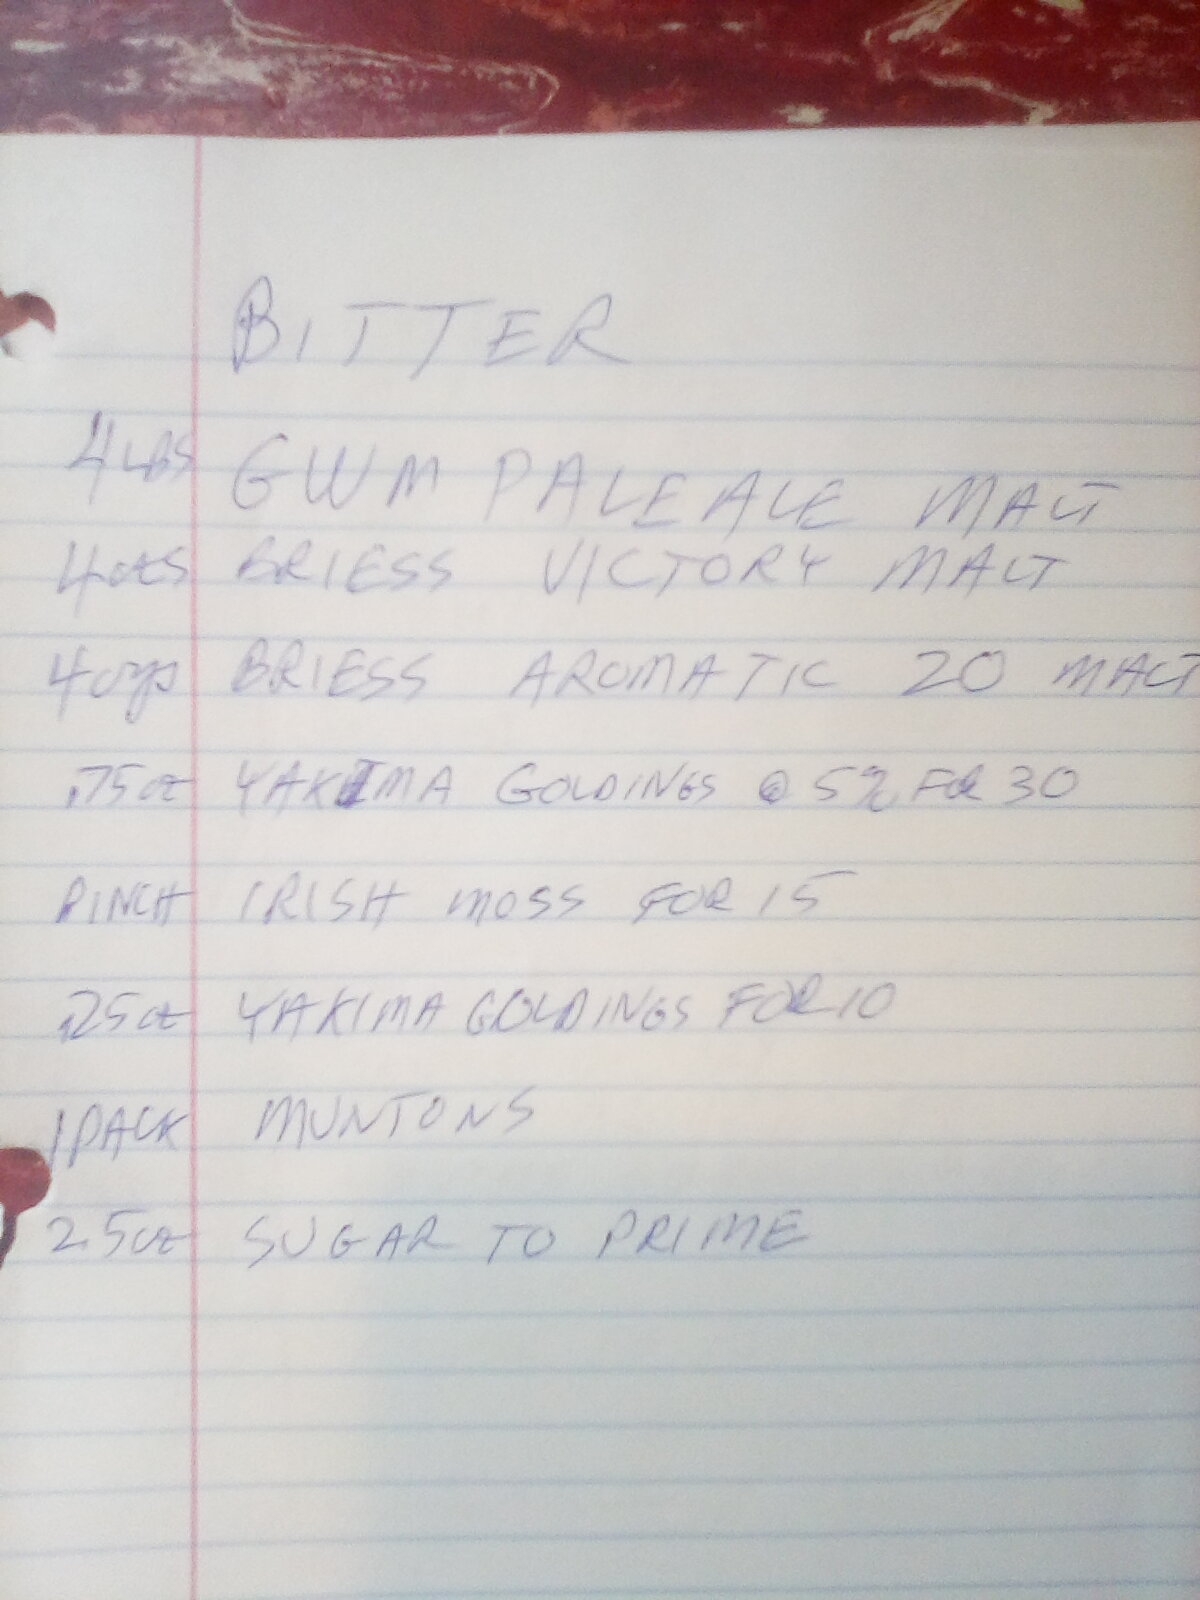 BITTER
4 LBS GWM PALE ALE MALT
4 OZS BRIESS VICTORY MALT
4 OZS BRIESS AROMATIC 20 MALT
.75 OZ YAKIMA GOLDINGS @ 5% FOR 30
PINCH IRISH MOSS FOR 15
.25 OZ YAKIMA GOLDINGS FOR 10
1 PACK MUNTONS
2.5 OZ SUGAR TO PRIME